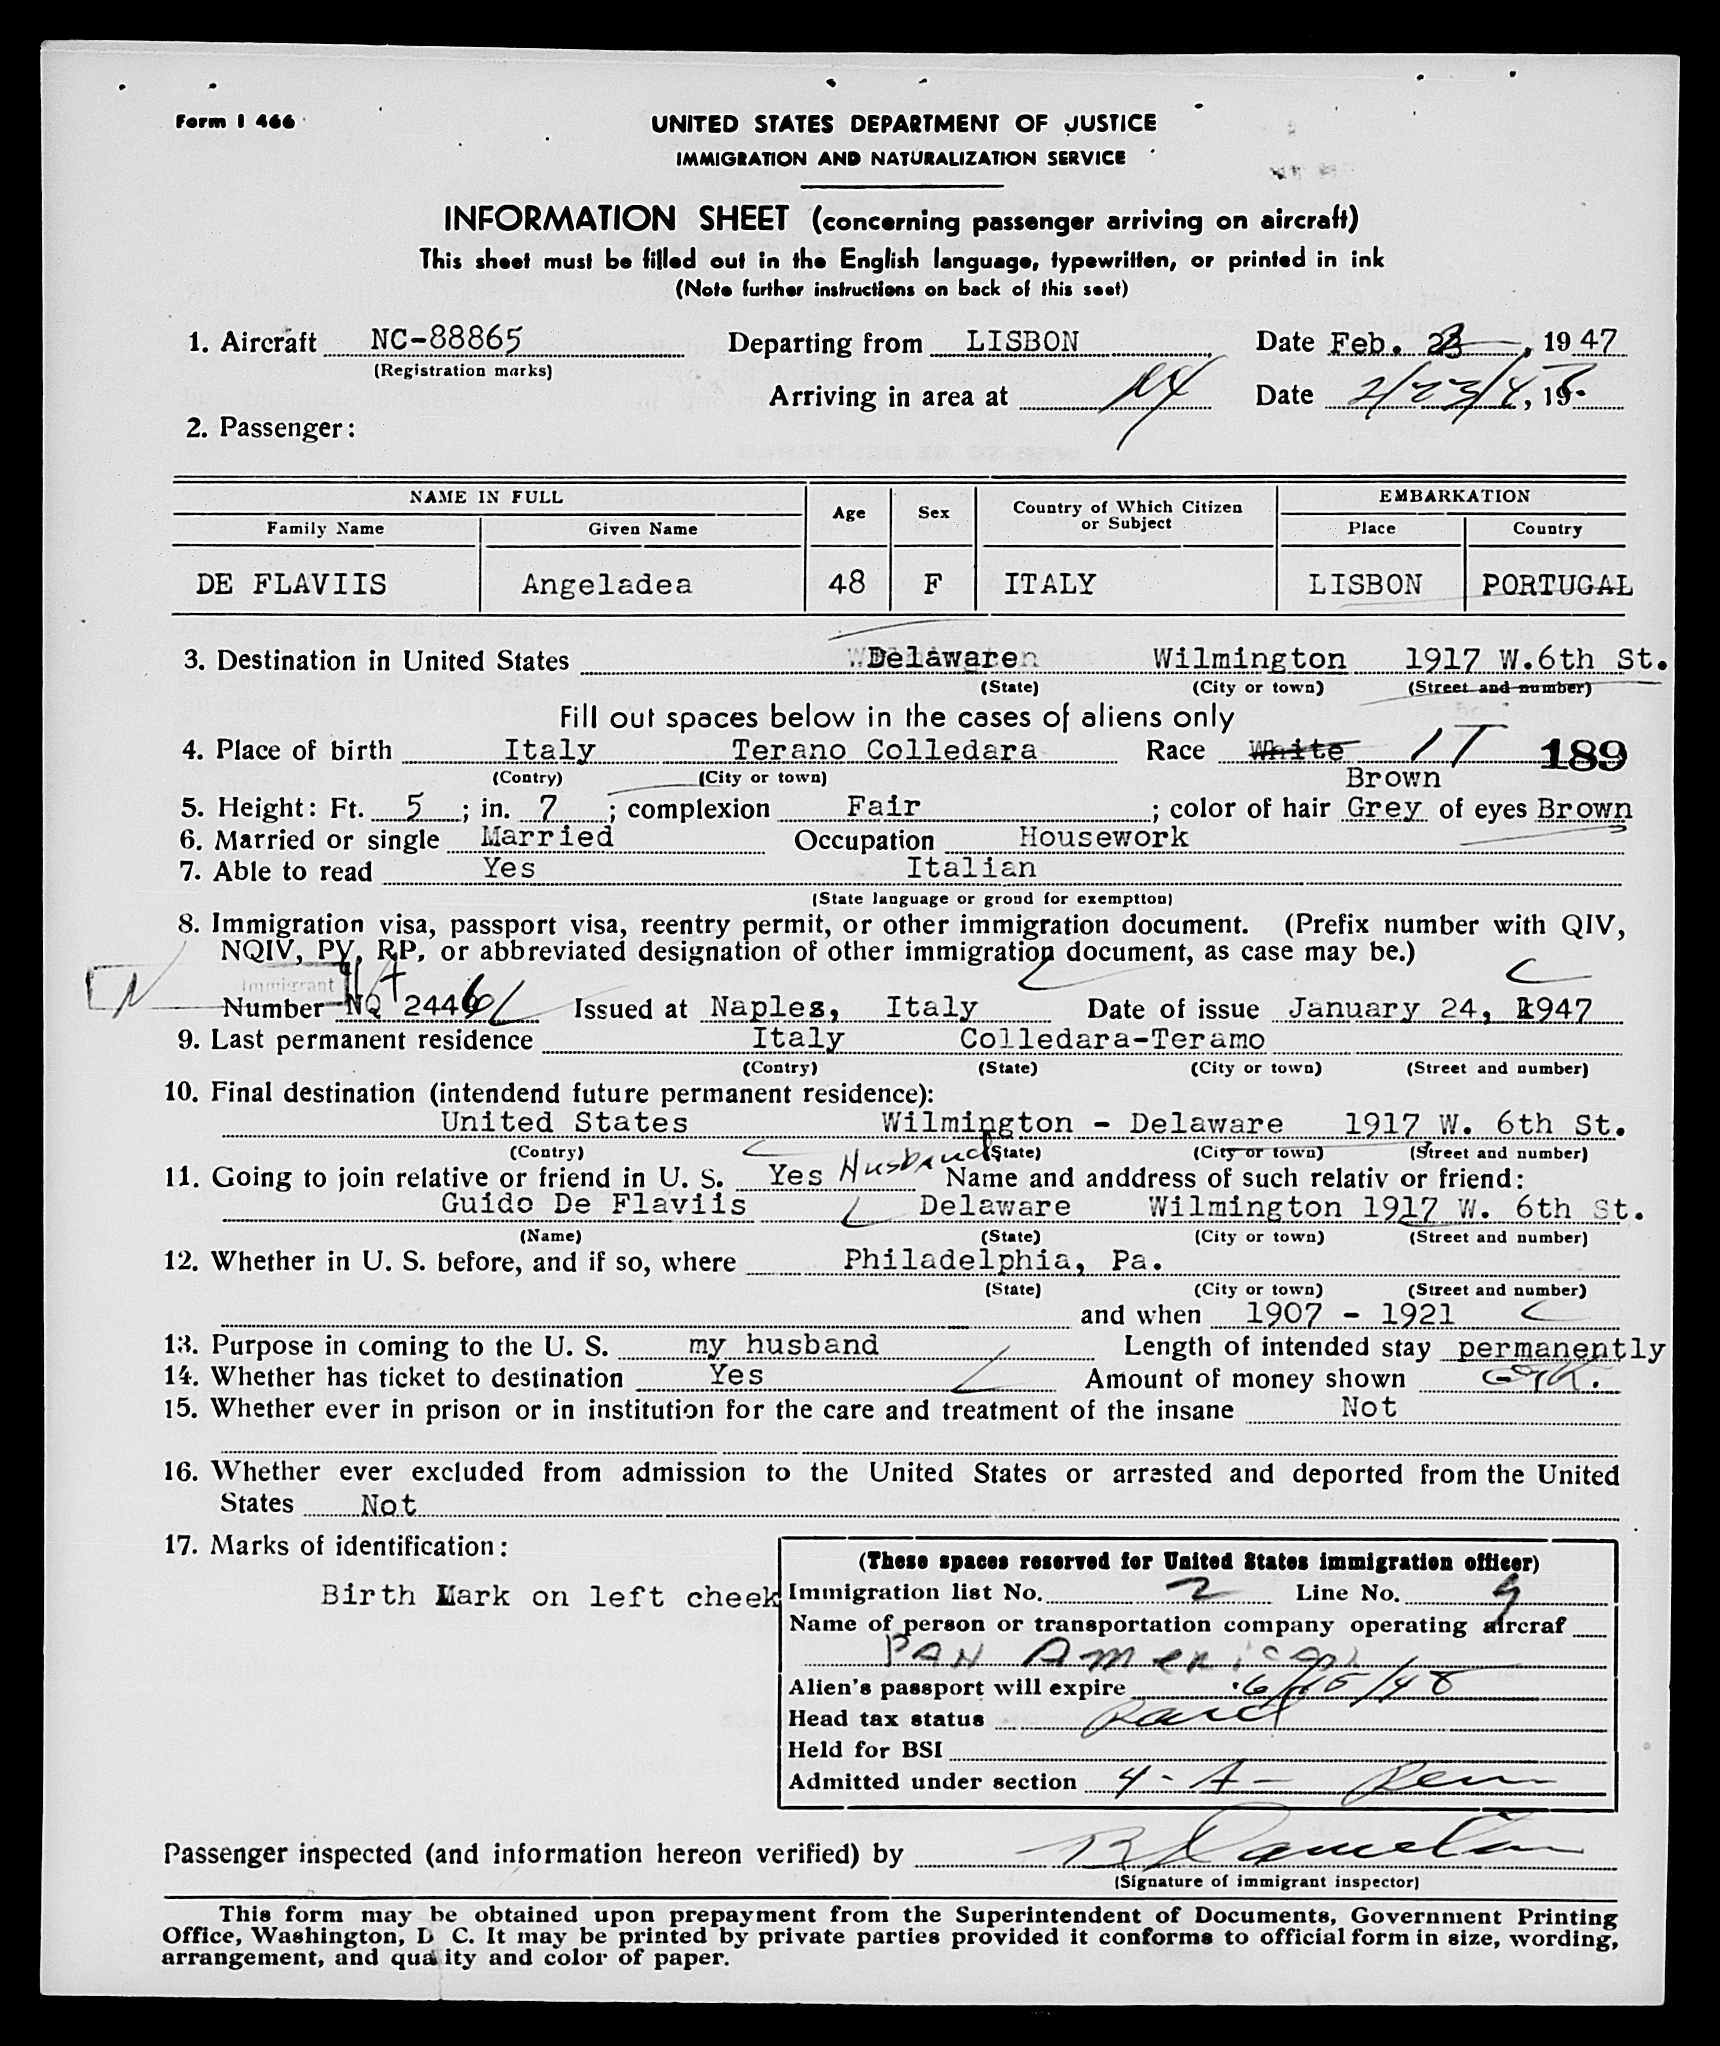 Form I 466
UNITED STATES DEPARTMENT OF JUSTICE
IMMIGRATION AND NATURALIZATION SERVICE
INFORMATION SHEET (concerning passenger arriving on aircraft)
This sheet must be filled out in the English language, typewritten, or printed in ink
(Note further instructions on back of this seet)
1. Aircraft NC-88865 Departing from LISBON Date Feb. 23, 1947
(Registration marks)
Arriving in area at NY Date 2/23/47, 19
2. Passenger:
NAME IN FULL Age Sex Country of Which Citizen or Subject EMBARKATION
Family Name Given Name Place Country
DE FLAVIIS Angeladea 48 F ITALY LISBON PORTUGAL
3. Destination in United States Delaware Wilmington 1917 W.6th St.
(State) (City or town) (Street and number)
Fill out spaces below in the cases of aliens only
4. Place of birth Italy Terano Colledara Race White IT 189
(Contry) (City or town) Brown
5. Height: Ft. 5 ; in. 7 ; complexion Fair ; color of hair Grey of eyes Brown
6. Married or single Married Occupation Housework
7. Able to read Yes Italian
(State language or grond for exemptton)
8. Immigration visa, passport visa, reentry permit, or other immigration document. (Prefix number with QIV,
NQIV, PV, RP, or abbreviated designation of other immigration document, as case may be.)
Immigrant
Number NQ 2446 Issued at Naples, Italy Date of issue January 24, 1947
9. Last permanent residence Italy Colledara-Teramo
(Contry) (State) (City or town) (Street and number)
10. Final destination (intendend future permanent residence):
United States Wilmington - Delaware 1917 W. 6th St.
(Contry) (State) (City or town) (Street and number)
11. Going to join relative or friend in U. S. Yes Husband Name and anddress of such relativ or friend:
Guido De Flaviis Delaware Wilmington 1917 W. 6th St.
(Name) (State) (City or town) (Street and number)
12. Whether in U. S. before, and if so, where Philadelphia, Pa.
(State) (City or town) (Street and number)
and when 1907 - 1921
13. Purpose in coming to the U. S. my husband Length of intended stay permanently
14. Whether has ticket to destination Yes Amount of money shown
15. Whether ever in prison or in institution for the care and treatment of the insane Not
16. Whether ever excluded from admission to the United States or arrested and deported from the United
States Not
17. Marks of identification:
Birth Mark on left cheek
(These spaces reserved for United States immigration officer)
Immigration list No. 2 Line No. 9
Name of person or transportation company operating aircraf
PAN American
Alien's passport will expire 6/15/48
Head tax status Paid
Held for BSI
Admitted under section 4-A-
Passenger inspected (and information hereon verified) by
(Signature of immigrant inspector)
This form may be obtained upon prepayment from the Superintendent of Documents, Government Printing
Office, Washington, D C. It may be printed by private parties provided it conforms to official form in size, wording,
arrangement, and quality and color of paper.